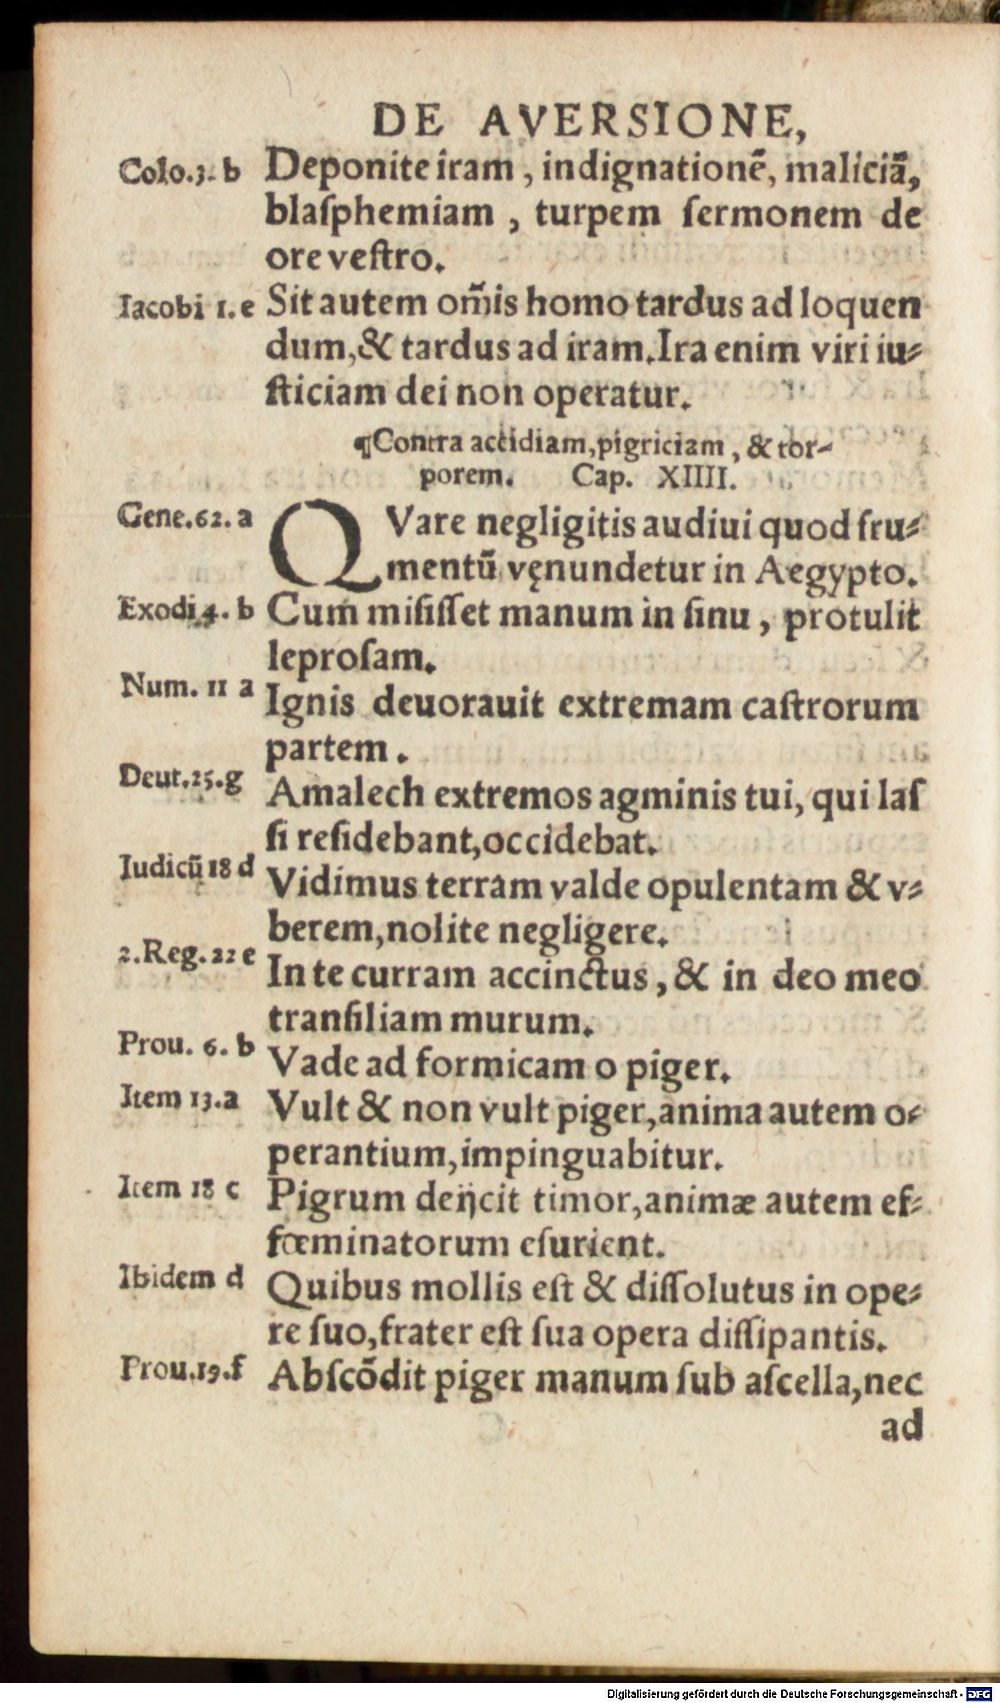 DE AVERSIONE,
Colo.3. b Deponite iram, indignationē, maliciā,
blaſphemiam, turpem ſermonem de
ore veſtro.
Iacobi 1. e Sit autem om̄is homo tardus ad loquen
dum,& tardus ad iram. Ira enim viri iu⸗
ſticiam dei non operatur.
¶Contra accidiam, pigriciam, & tor-
porem. Cap. XIIII.
Gene.62. a QVare negligitis audiui quod fru⸗
mentū vęnundetur in Aegypto.
Exodi 4. b Cum miſiſſet manum in ſinu, protulit
leproſam.
Num. 11 a Ignis deuorauit extremam caſtrorum
partem.
Deut.25.g Amalech extremos agminis tui, qui laſ
ſi reſidebant, occidebat.
Iudicū 18 d Vidimus terram valde opulentam & v⸗
berem, nolite negligere.
2.Reg.22 e In te curram accinctus, & in deo meo
tranſiliam murum.
Prou. 6. b Vade ad formicam o piger.
Item 13.a Vult & non vult piger, anima autem o⸗
perantium, impinguabitur.
Item 18 c Pigrum deijcit timor, animæ autem ef⸗
fœminatorum eſurient.
Ibidem d Quibus mollis eſt & diſſolutus in ope⸗
re ſuo, frater eſt ſua opera diſſipantis.
Prou.19.f Abſcōdit piger manum ſub aſcella, nec
ad
Digitalisierung gefördert durch die Deutsche Forschungsgemeinschaft - DFG